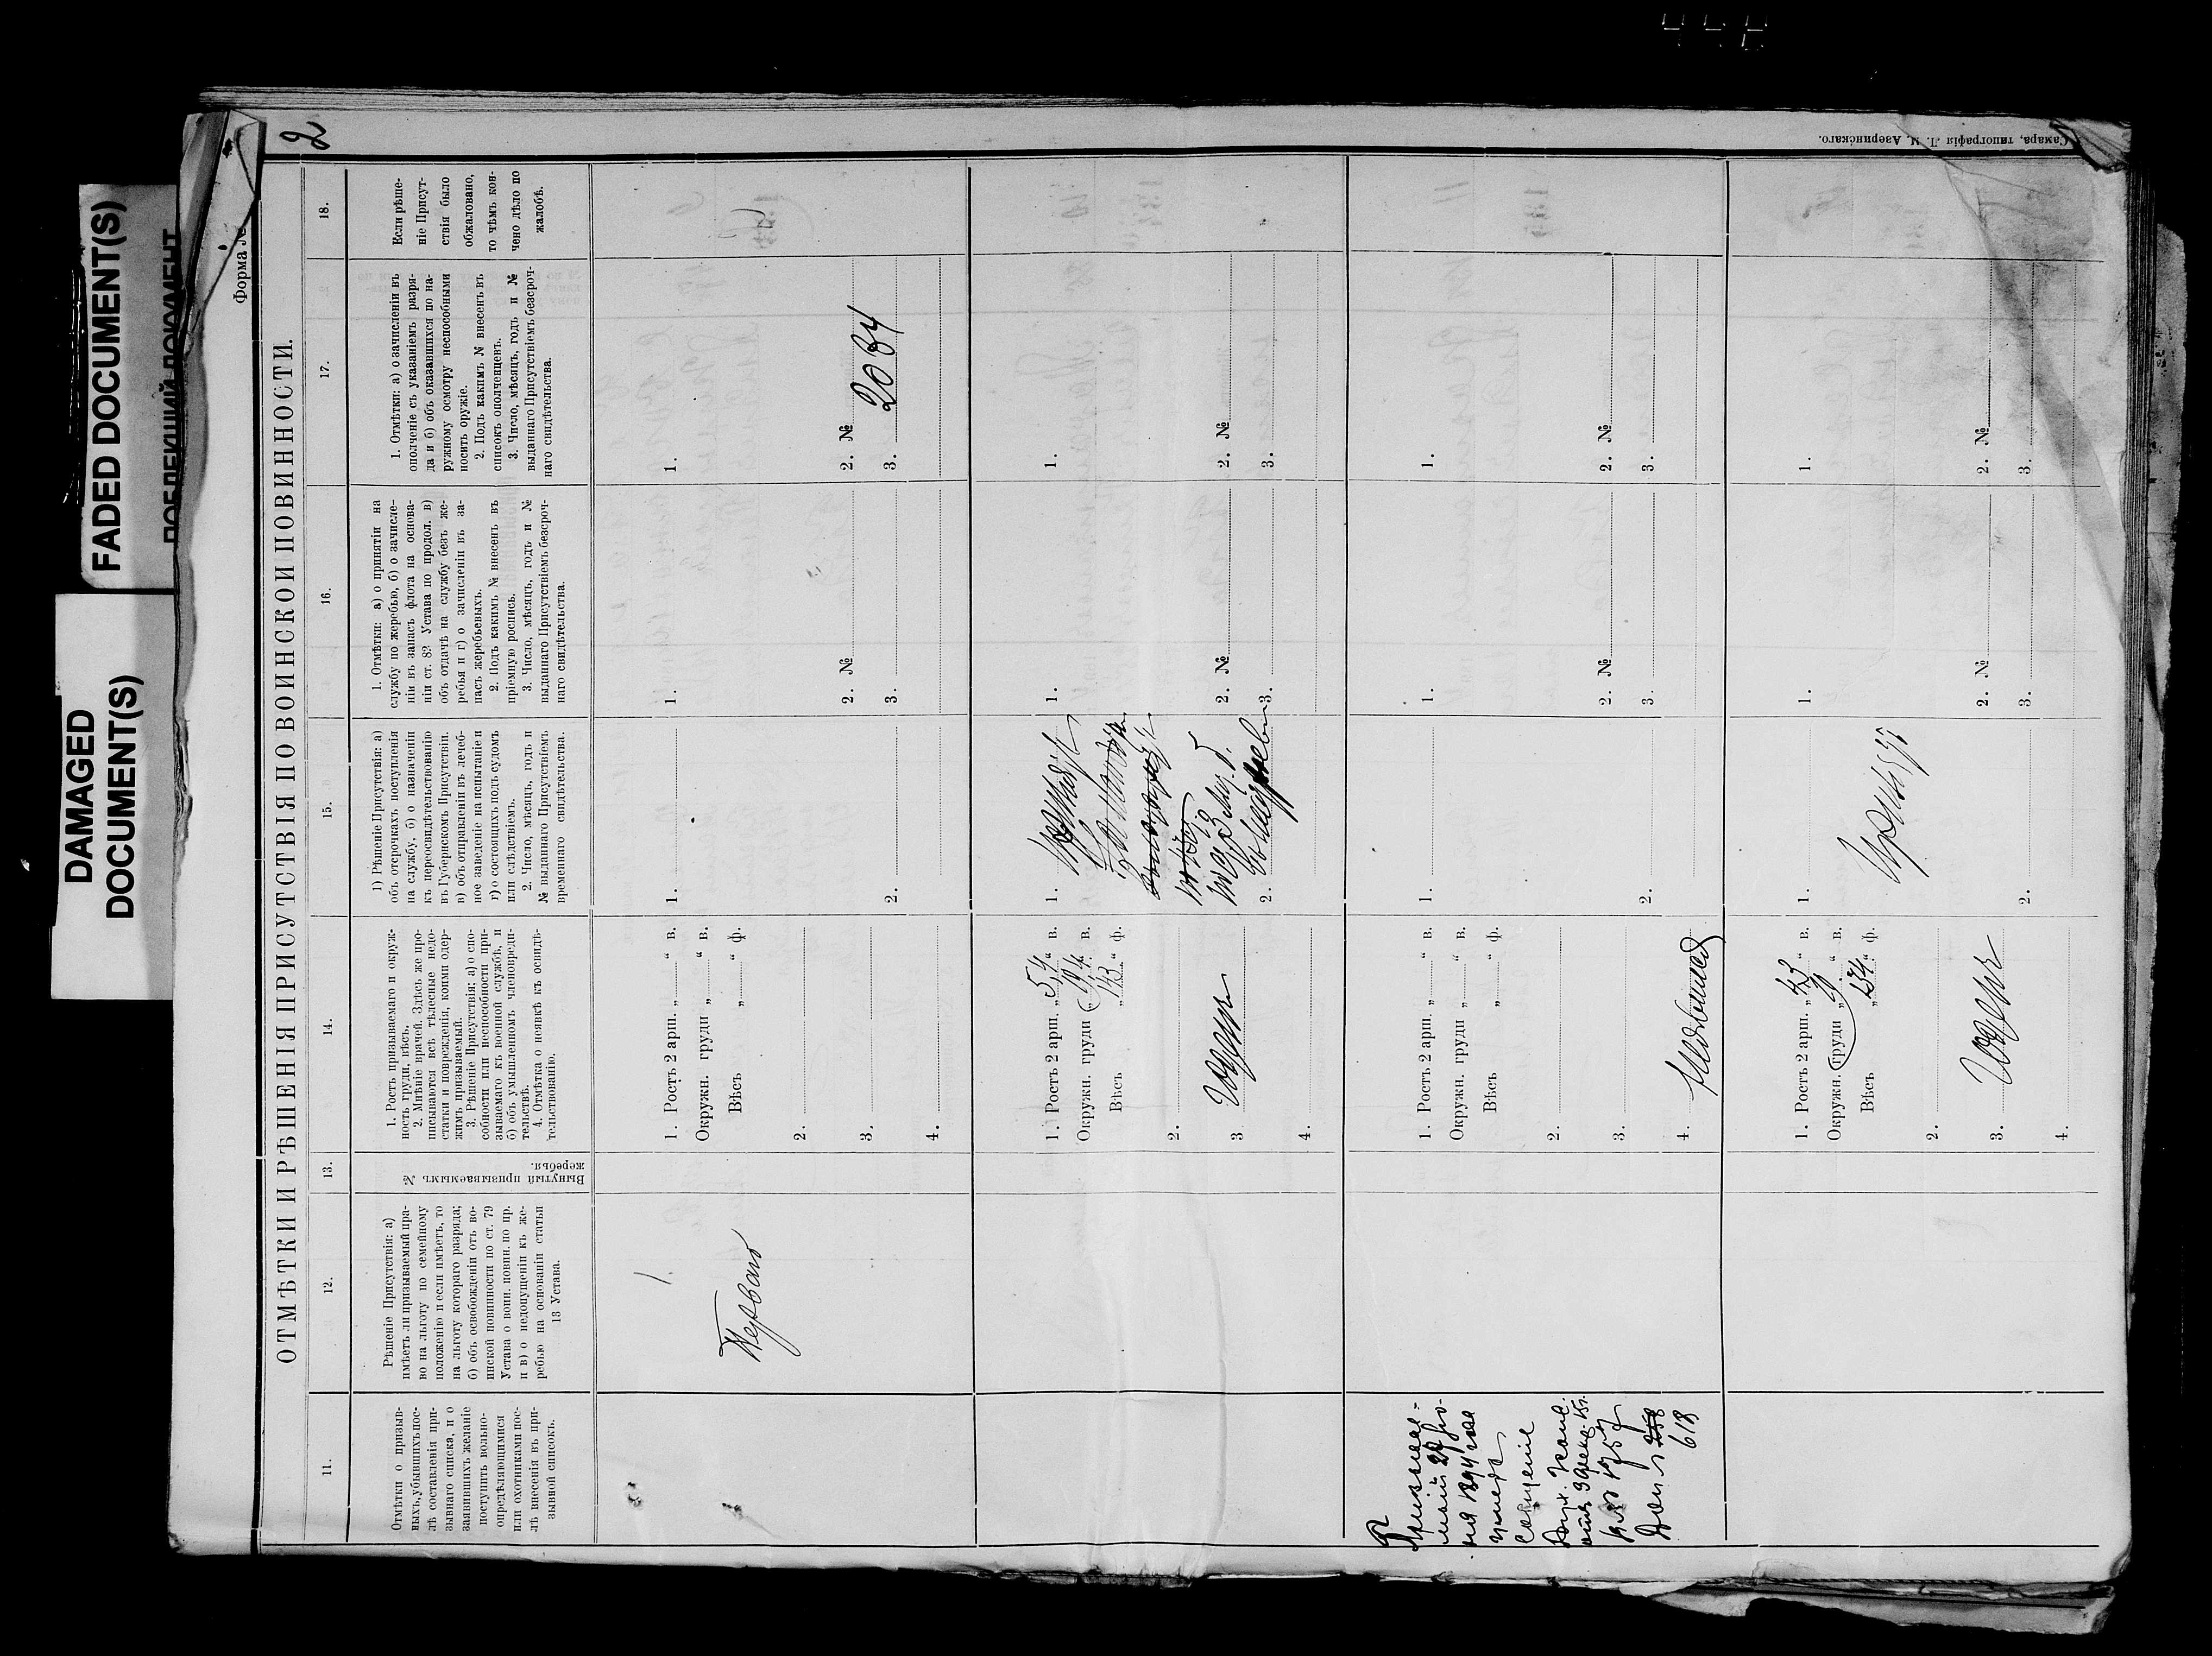 FADED DOCUMENT(S)
DAMAGED
DOCUMENT(S)
Форма
2
ОТМѢТКИ И РѢШЕНІЯ ПРИСУТСТВІЯ ПО ВОИНСКОЙ ПОВИННОСТИ.
11.
12.
13.
14.
15.
16.
17.
18.
Отмѣтки о призыв-
ныхъ, убывшихъ пос-
лѣ составленія при-
зывнаго списка, и о
заявившихъ желаніе
поступить вольно-
опредѣляющимися
или охотниками пос-
лѣ внесенія въ при-
зывной списокъ.
Рѣшеніе Присутствія: а)
имѣетъ ли призываемый пра-
во на льготу по семейному
положенію и если имѣетъ, то
на льготу котораго разряда;
б) объ освобожденіи отъ во-
инской повинности по ст. 79
Устава о воин. повин. по пр.
и в) о недопущеніи къ же-
ребью на основаніи статьи
13 Устава.
Вынутый призываемымъ №
жеребья.
1. Ростъ призываемаго и окруж-
ность груди, вѣсъ.
2. Мнѣніе врачей. Здѣсь же про-
писываются всѣ тѣлесные недо-
статки и поврежденія, коими одер-
жимъ призываемый.
3. Рѣшеніе Присутствія; а) о спо-
собности или неспособности при-
зываемаго къ военной службѣ, и
б) объ умышленномъ членовреди-
тельствѣ.
4. Отмѣтка о неявкѣ къ освидѣ-
тельствованію.
1) Рѣшеніе Присутствія: а)
объ отсрочкахъ поступленія
на службу, б) о назначеніи
къ переосвидѣтельствованію
въ Губернскомъ Присутствіи.
в) объ отправленіи въ лечеб-
ное заведеніе на испытаніе и
г) о состоящихъ подъ судомъ
или слѣдствіемъ.
2. Число, мѣсяцъ, годъ и
№ выданнаго Присутствіемъ
временнаго свидѣтельства.
1. Отмѣтки: а) о принятіи на
службу по жеребью, б) о зачисле-
ніи въ запасъ флота на основа-
ніи ст. 82 Устава по продол. в)
объ отдачѣ на службу безъ же-
ребья и г) о зачисленіи въ за-
пасъ жеребьевыхъ.
2. Подъ какимъ № внесенъ въ
пріемную роспись.
3. Число, мѣсяцъ, годъ и №
выданнаго Присутствіемъ безсроч-
наго свидѣтельства.
1. Отмѣтки: а) о зачисленіи въ
ополченіе съ указаніемъ разря-
да и б) объ оказавшихся по на-
ружному осмотру неспособными
носить оружіе.
2. Подъ какимъ № внесенъ въ
списокъ ополченцевъ.
3. Число, мѣсяцъ, годъ и №
выданнаго Присутствіемъ безсроч-
наго свидѣтельства.
Если рѣше-
ніе Присут-
ствія было
обжаловано,
то чѣмъ кон-
чено дѣло по
жалобѣ.
Перваго
1. Ростъ 2 арш. „ “ в.
Окружн. груди „ “ в.
Вѣсъ „ “ ф.
2.
3.
4.
1.
2.
1.
2. №
3.
1.
2. №
3.
2034
1. Ростъ 2 арш. „5 “ в.
Окружн. груди “ в.
Вѣсъ „143“ ф.
2.
3 Годенъ
4.
1.
2.
1.
2. №
3.
1.
2. №
3.
618
1. Ростъ 2 арш. „ “ в.
Окружн. груди „ “ в.
Вѣсъ „ “ ф.
2.
3.
4. Неявившійся
1.
2.
1.
2. №
3.
1.
2. №
3.
1. Ростъ 2 арш. „ “ в.
Окружн. груди „ “ в.
Вѣсъ „154“ ф.
2.
3. Годенъ
4.
1.
2.
1.
2. №
3.
1.
2. №
3.
Самара, типографія Л. И. Азеринскаго.